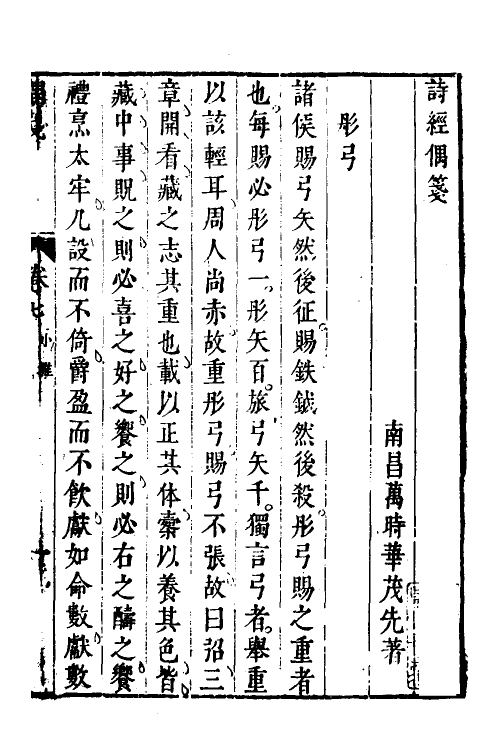 詩經偶箋
南昌萬時華茂先著
彤弓
諸侯賜弓矢然後征賜鈇鉞然後殺彤弓賜之重者
也每賜必彤弓一彤矢百旅弓矢千獨言弓者舉重
以該輕耳周人尚赤故重彤弓賜弓不張故曰弨三
章開看藏之志其重也載以正其体櫜以養其色皆
藏中事貺之則必喜之好之饗之則必右之醻之饗
禮烹太牢几設而不倚爵盈而不飲獻如命數獻數
卷七
小雅